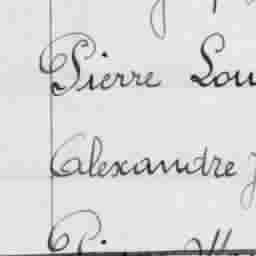 Pierre Lou
Alexandre